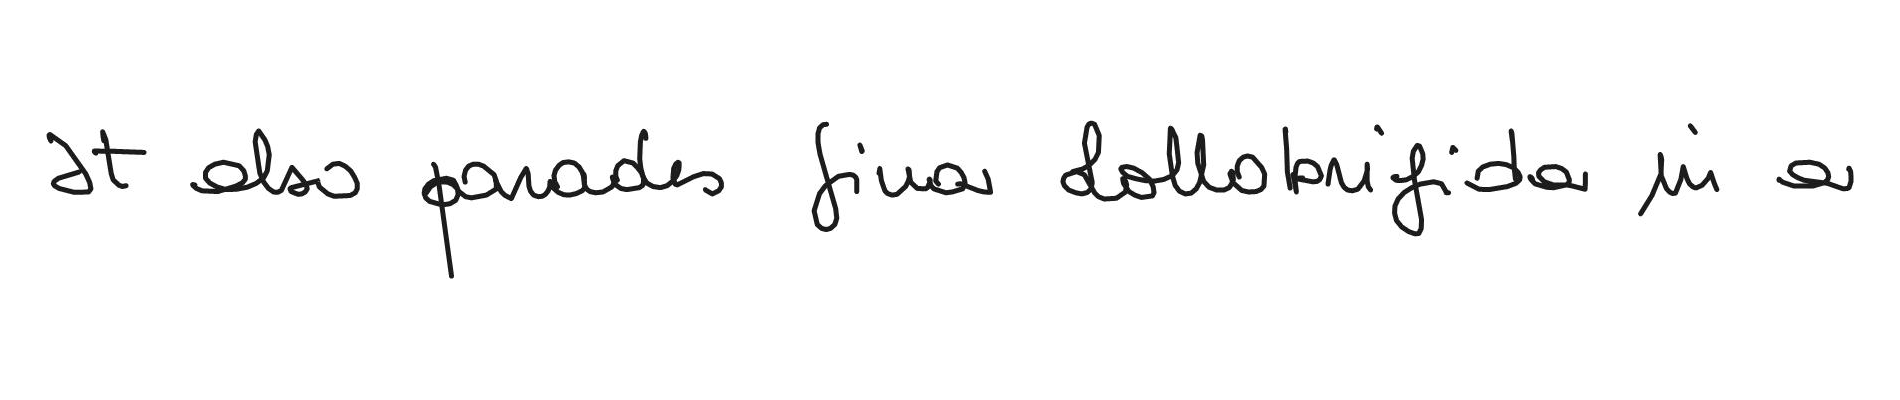 It also parades Gina Lollobrigida in a